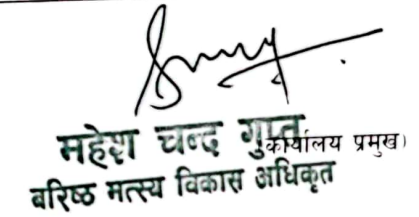 महेश चन्द गुप्त
कार्यालय प्रमुख)
वरिष्ठ मत्स्य विकास अधिकृत